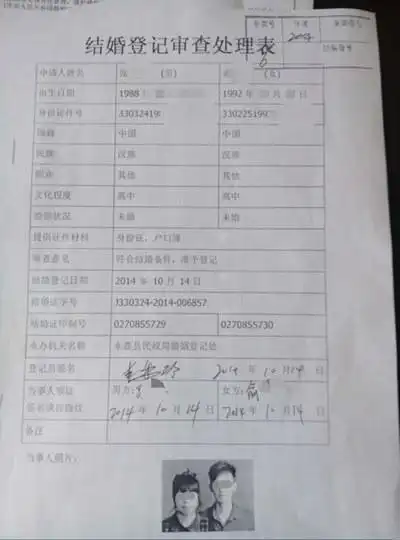 年度
2014
结婚登记审查处理表
6
申请人姓名 (男) (女)
出生日期 1988 1992 年 月 日
身份证件号 33032419 330225199
国籍 中国 中国
民族 汉族 汉族
职业 其他 其他
文化程度 高中 高中
婚姻状况 未婚 未婚
提供证件材料 身份证、户口簿
审查意见 符合结婚条件，准予登记
结婚登记日期 2014 年 10 月 14 日
结婚证字号 J330324-2014-006857
结婚证印制号 0270855729 0270855730
承办机关名称 永嘉县民政局婚姻登记处
登记员签名 2014 年 10 月 14 日
当事人领证 男方: 女方: 俞
签名或按指纹 2014 年 10 月 14 日 2014 年 10 月 14 日
备注
当事人照片: